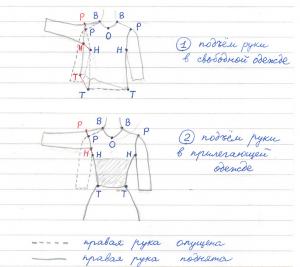 P B B P
P O
H H H
T T T
① подъём руки
в свободной одежде
P B B P
P O
H H H
T T
② подъём руки
в прилегающей
одежде
правая рука опущена
правая рука поднята